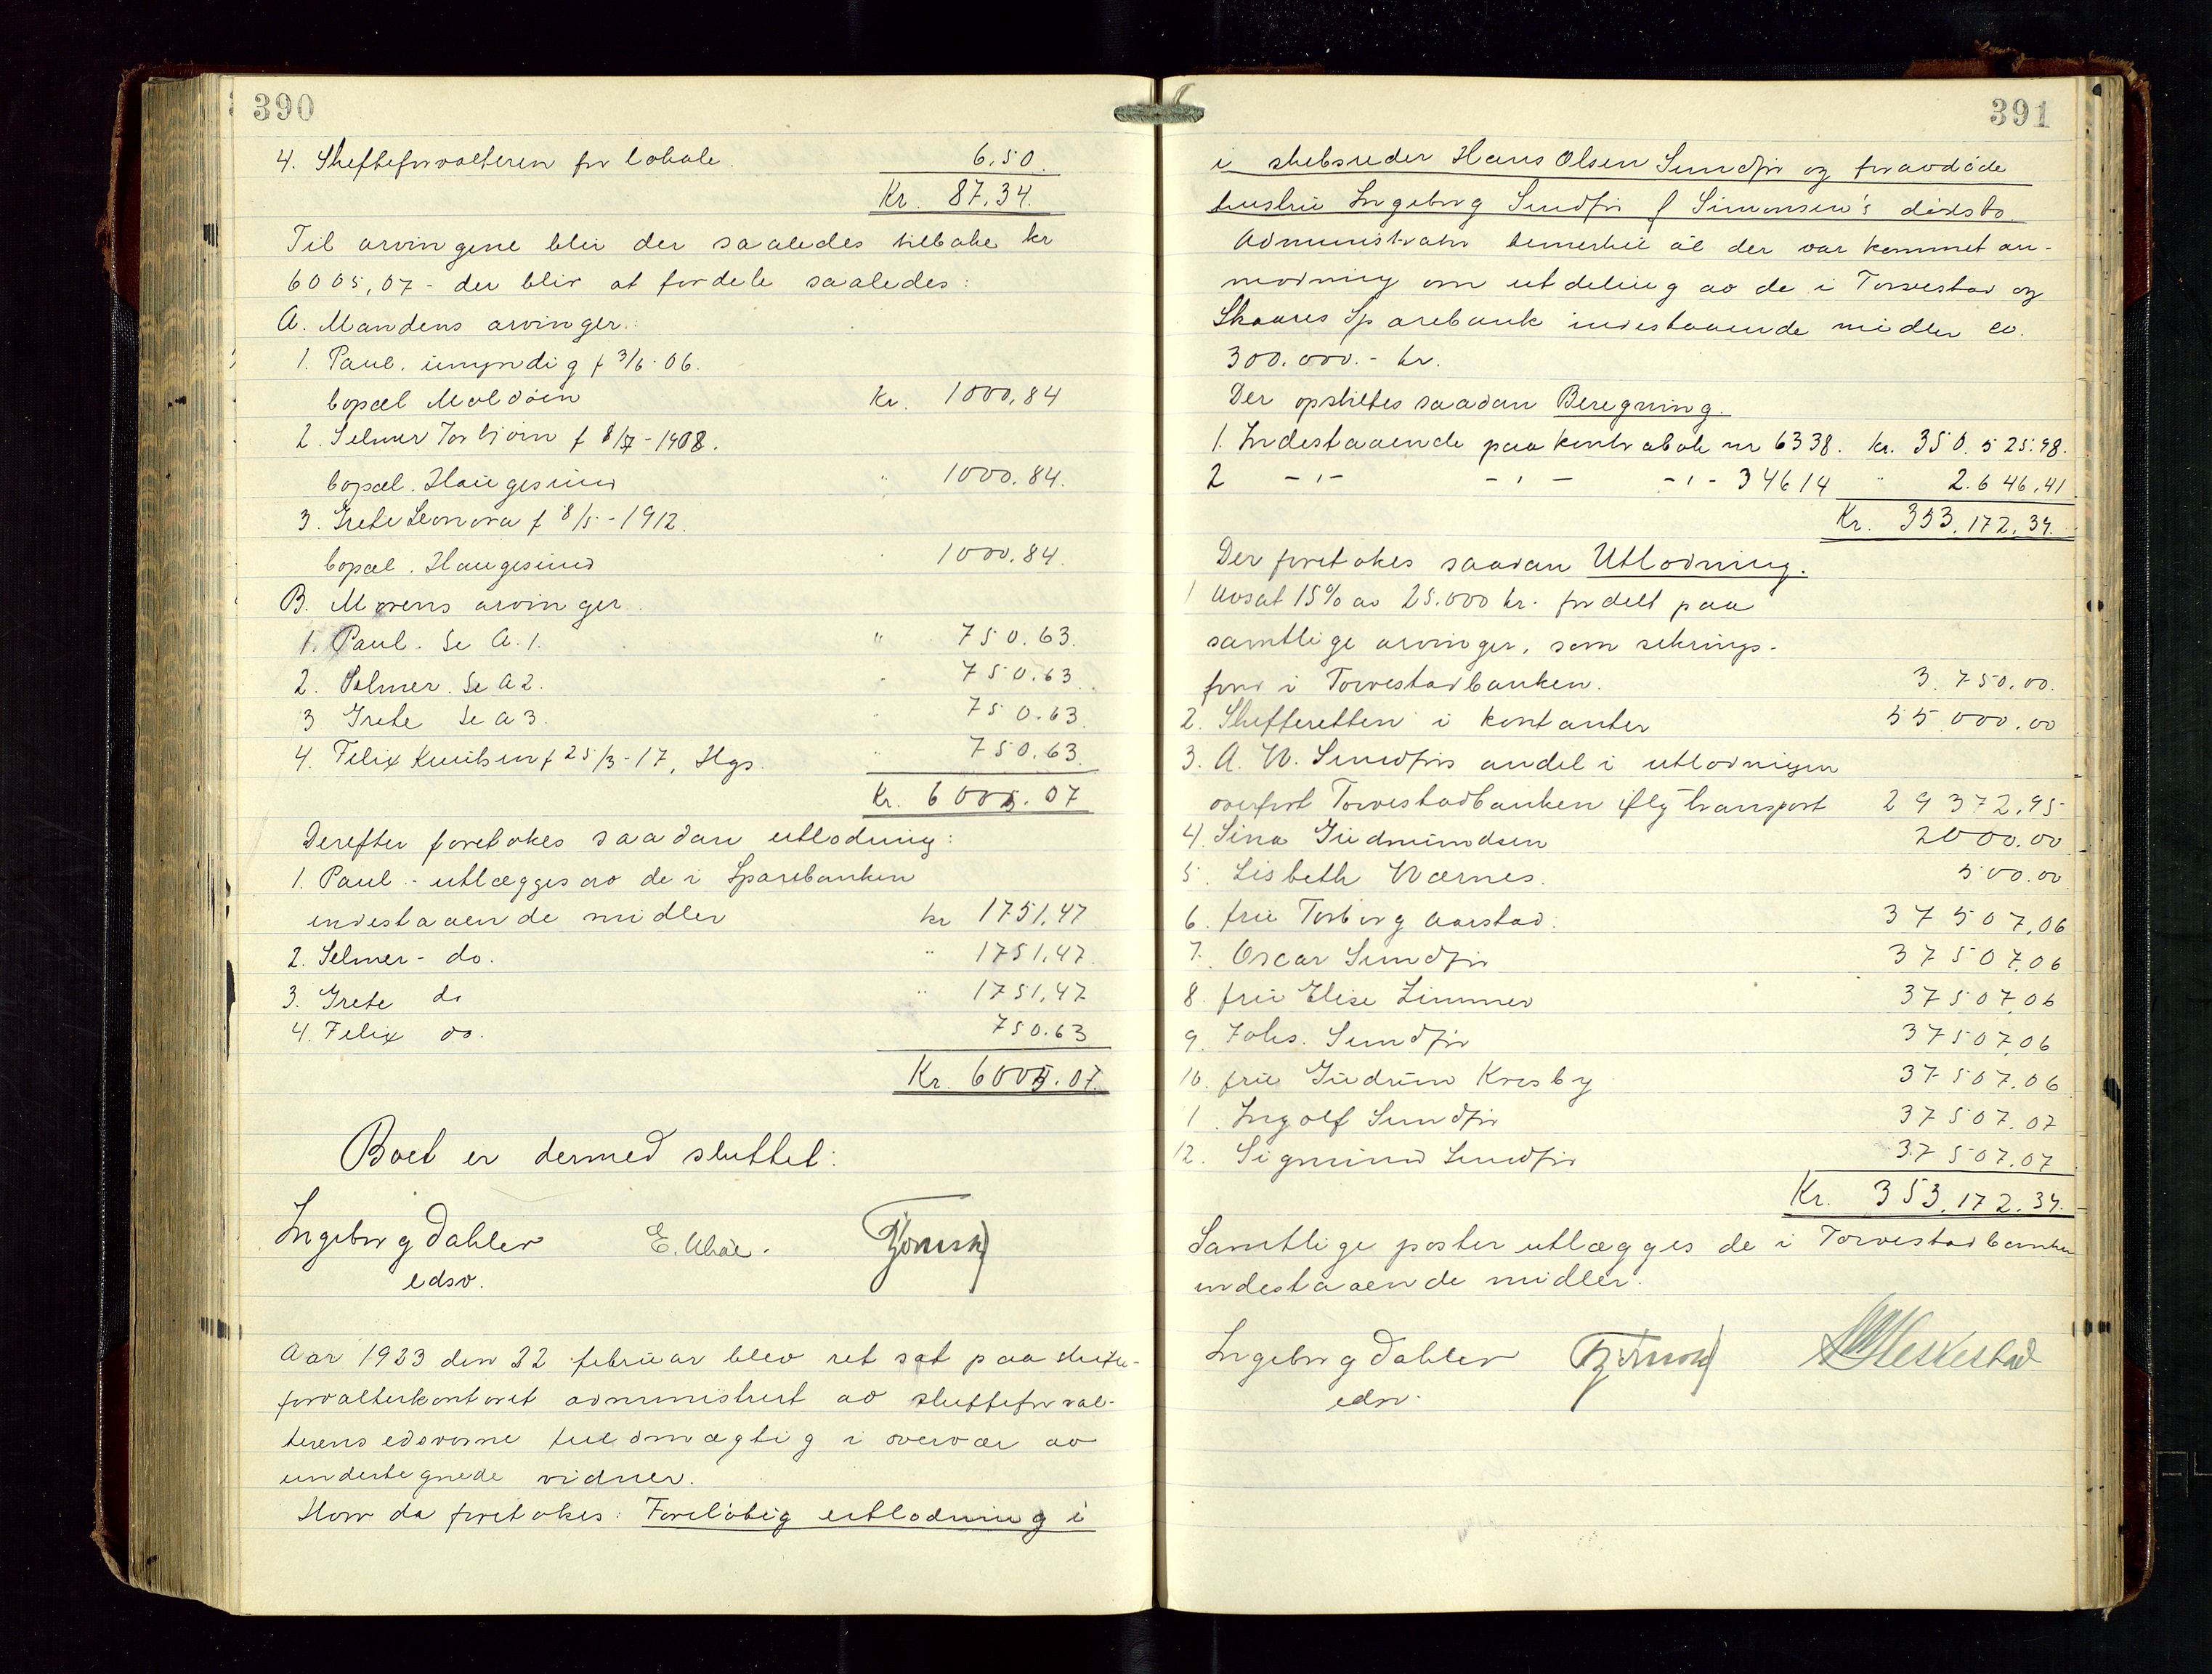 390
4. Skifteforvalteren for lokale. 6,50
Kr. 87,34.
Til arvingene blir der saaledes tilbake kr
6005,07 - der blir at fordele saaledes:
A. Mandens arvinger:
1. Paul. umyndig f 3/6-06.
bopæl Moldöen Kr. 1000,84
2. Selmer Torbjörn f 8/7-1908.
bopæl. Haugesund " 1000.84.
3. Grete Leonora f 8/5-1912.
bopæl. Haugesund " 1000.84.
B. Morens arvinger.
1. Paul. Se A.1. " 750.63.
2. Selmer. Se A2. " 750.63.
3 Grete Se A3. " 750.63.
4. Felix Knutsen f 25/3-17, Hgs. " 750.63.
Kr. 6005.07
Derefter foretokes saadan utlodning:
1. Paul - utlægges av de i Sparebanken
indestaaende midler kr 1751,47
2. Selmer - do. " 1751,47.
3. Grete do " 1751,47
4. Felix do. 750.63
Kr. 6005.07.
Boet er dermed sluttet:
Ingeborg Dahler E.
edsv.
Aar 1923 den 22 februar blev ret sat paa skifte-
forvalterkontoret administrert av skifteforval-
terens edsvorne fuldmægtig i overvær av
undertegnede vidner.
Hvor da foretokes: Foreløbig utlodning i
391
i skibsreder Hans Olsen Sundfør og foravdöde
hustru Ingeborg Sundfør f Simonsen's dödsbo.
Administrator bemerket at der var kommet an-
modning om utdeling av de i Torvestad og
Skaares Sparebank indestaaende midler ca.
300.000.- kr.
Der opstilles saadan Beregning.
1. Indestaaende paa kontrabok nr 6338. kr. 350.525.98.
2 -"- -"- -"- 34614 " 2.646,41.
Kr. 353.172.39.
Der foretokes saadan Utlodning.
1 Avsat 15% av 25.000 kr. fordelt paa
samtlige arvinger, som sikrings-
fond i Torvestadbanken. 3.750,00.
2. Skifteretten i kontanter 55000.00
3. A. W. Sundførs andel i utlodningen
overført Torvestadbanken iflg transport 29372,95
4. Sina Gudmundsen 2000.00
5. Lisbeth Wærnes. 500.00
6. fru Torborg Aarstad. 37507,06
7. Oscar Sundfør 37507,06
8. fru Elise Zimmer 37507,06
9. Johs. Sundfør 37507,06
10. fru Gudrun Kvesby 37507,06
1. Ingolf Sundfør 37507.07
12. Sigmund Sundfør 37507.07
Kr. 353.172.39.
Samtlige poster utlægges de i Torvestadbanken
indestaaende midler.
Ingeborg Dahler
edsv.